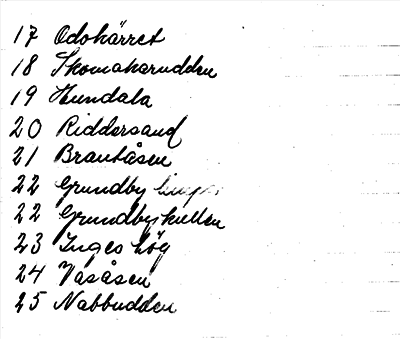 17 Odokärret
18 Skomakarudden
19 Hundala
20 Riddersand
21 Brantåsen
22 Grundby
22 Grundbykullen
23 Inges hög
24 Vasåsen
25 Nabbudden